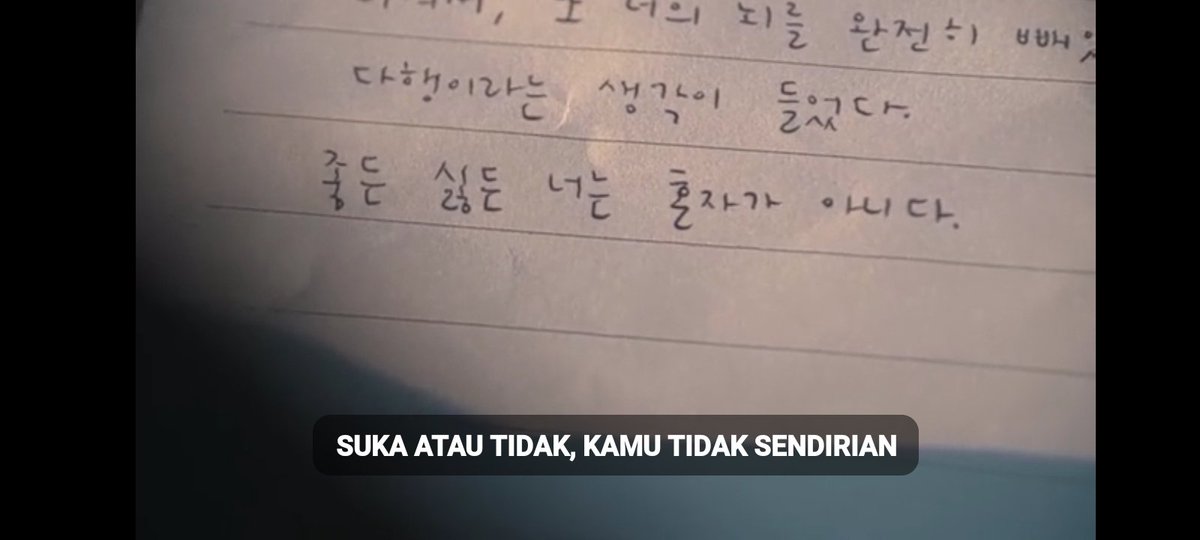 너의 뇌를 완전히
다행이라는 생각이 들었다.
좋든 싫든 너는 혼자가 아니다.
SUKA ATAU TIDAK, KAMU TIDAK SENDIRIAN